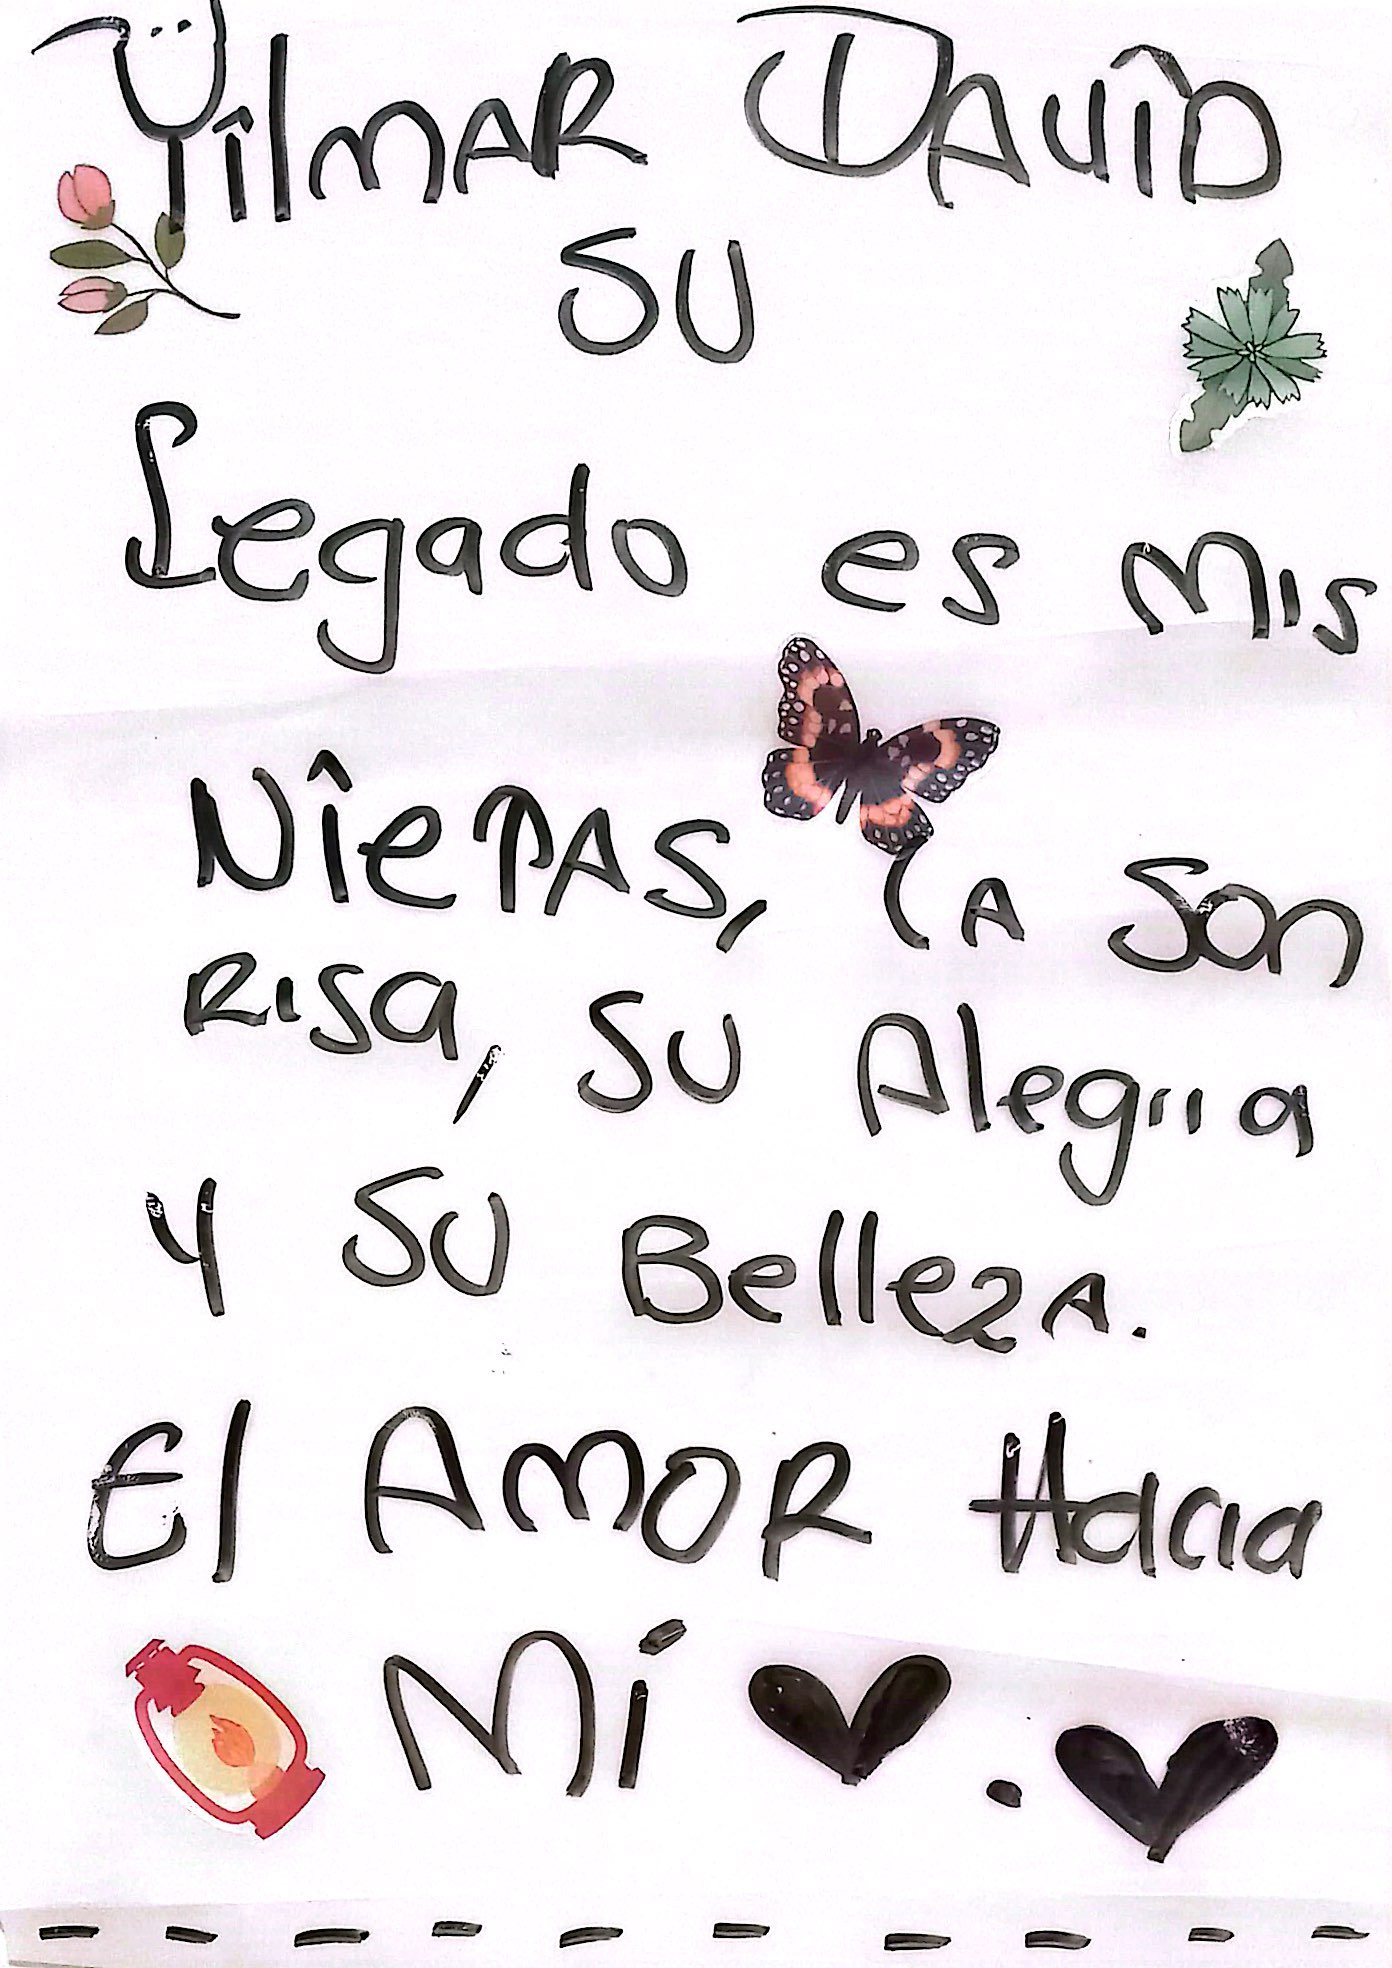 Yîlmar Davîd
su
Legado es mis
Nîetas, la son
risa, su Alegiia
y su Belleza.
El Amor Hacia
Mí